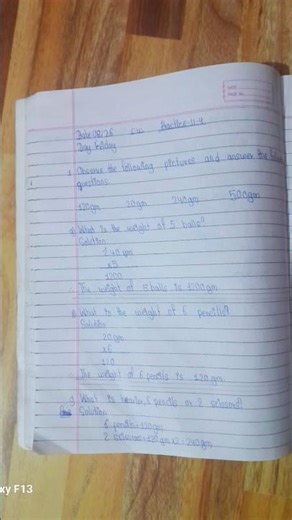 DATE
PAGE NO.
Date 08/26 C.W Practice 11.4
Day Friday
Observe the following pictures and answer the
questions
120gm 20gm 240gm 500gm
What is the weight of 5 balls?
Solution
240 gm
x5
1200
The weight of 5 balls is 1200 gm
What is the weight of 6 pencils?
Solution
20 gm
x6
120
The weight of 6 pencils is 120 gm.
What is heavier, 6 pencils or 2 scissors?
Solution
6 pencils = 120gm
2 scissors = 120 gm x 2 = 240 gm
xy F13